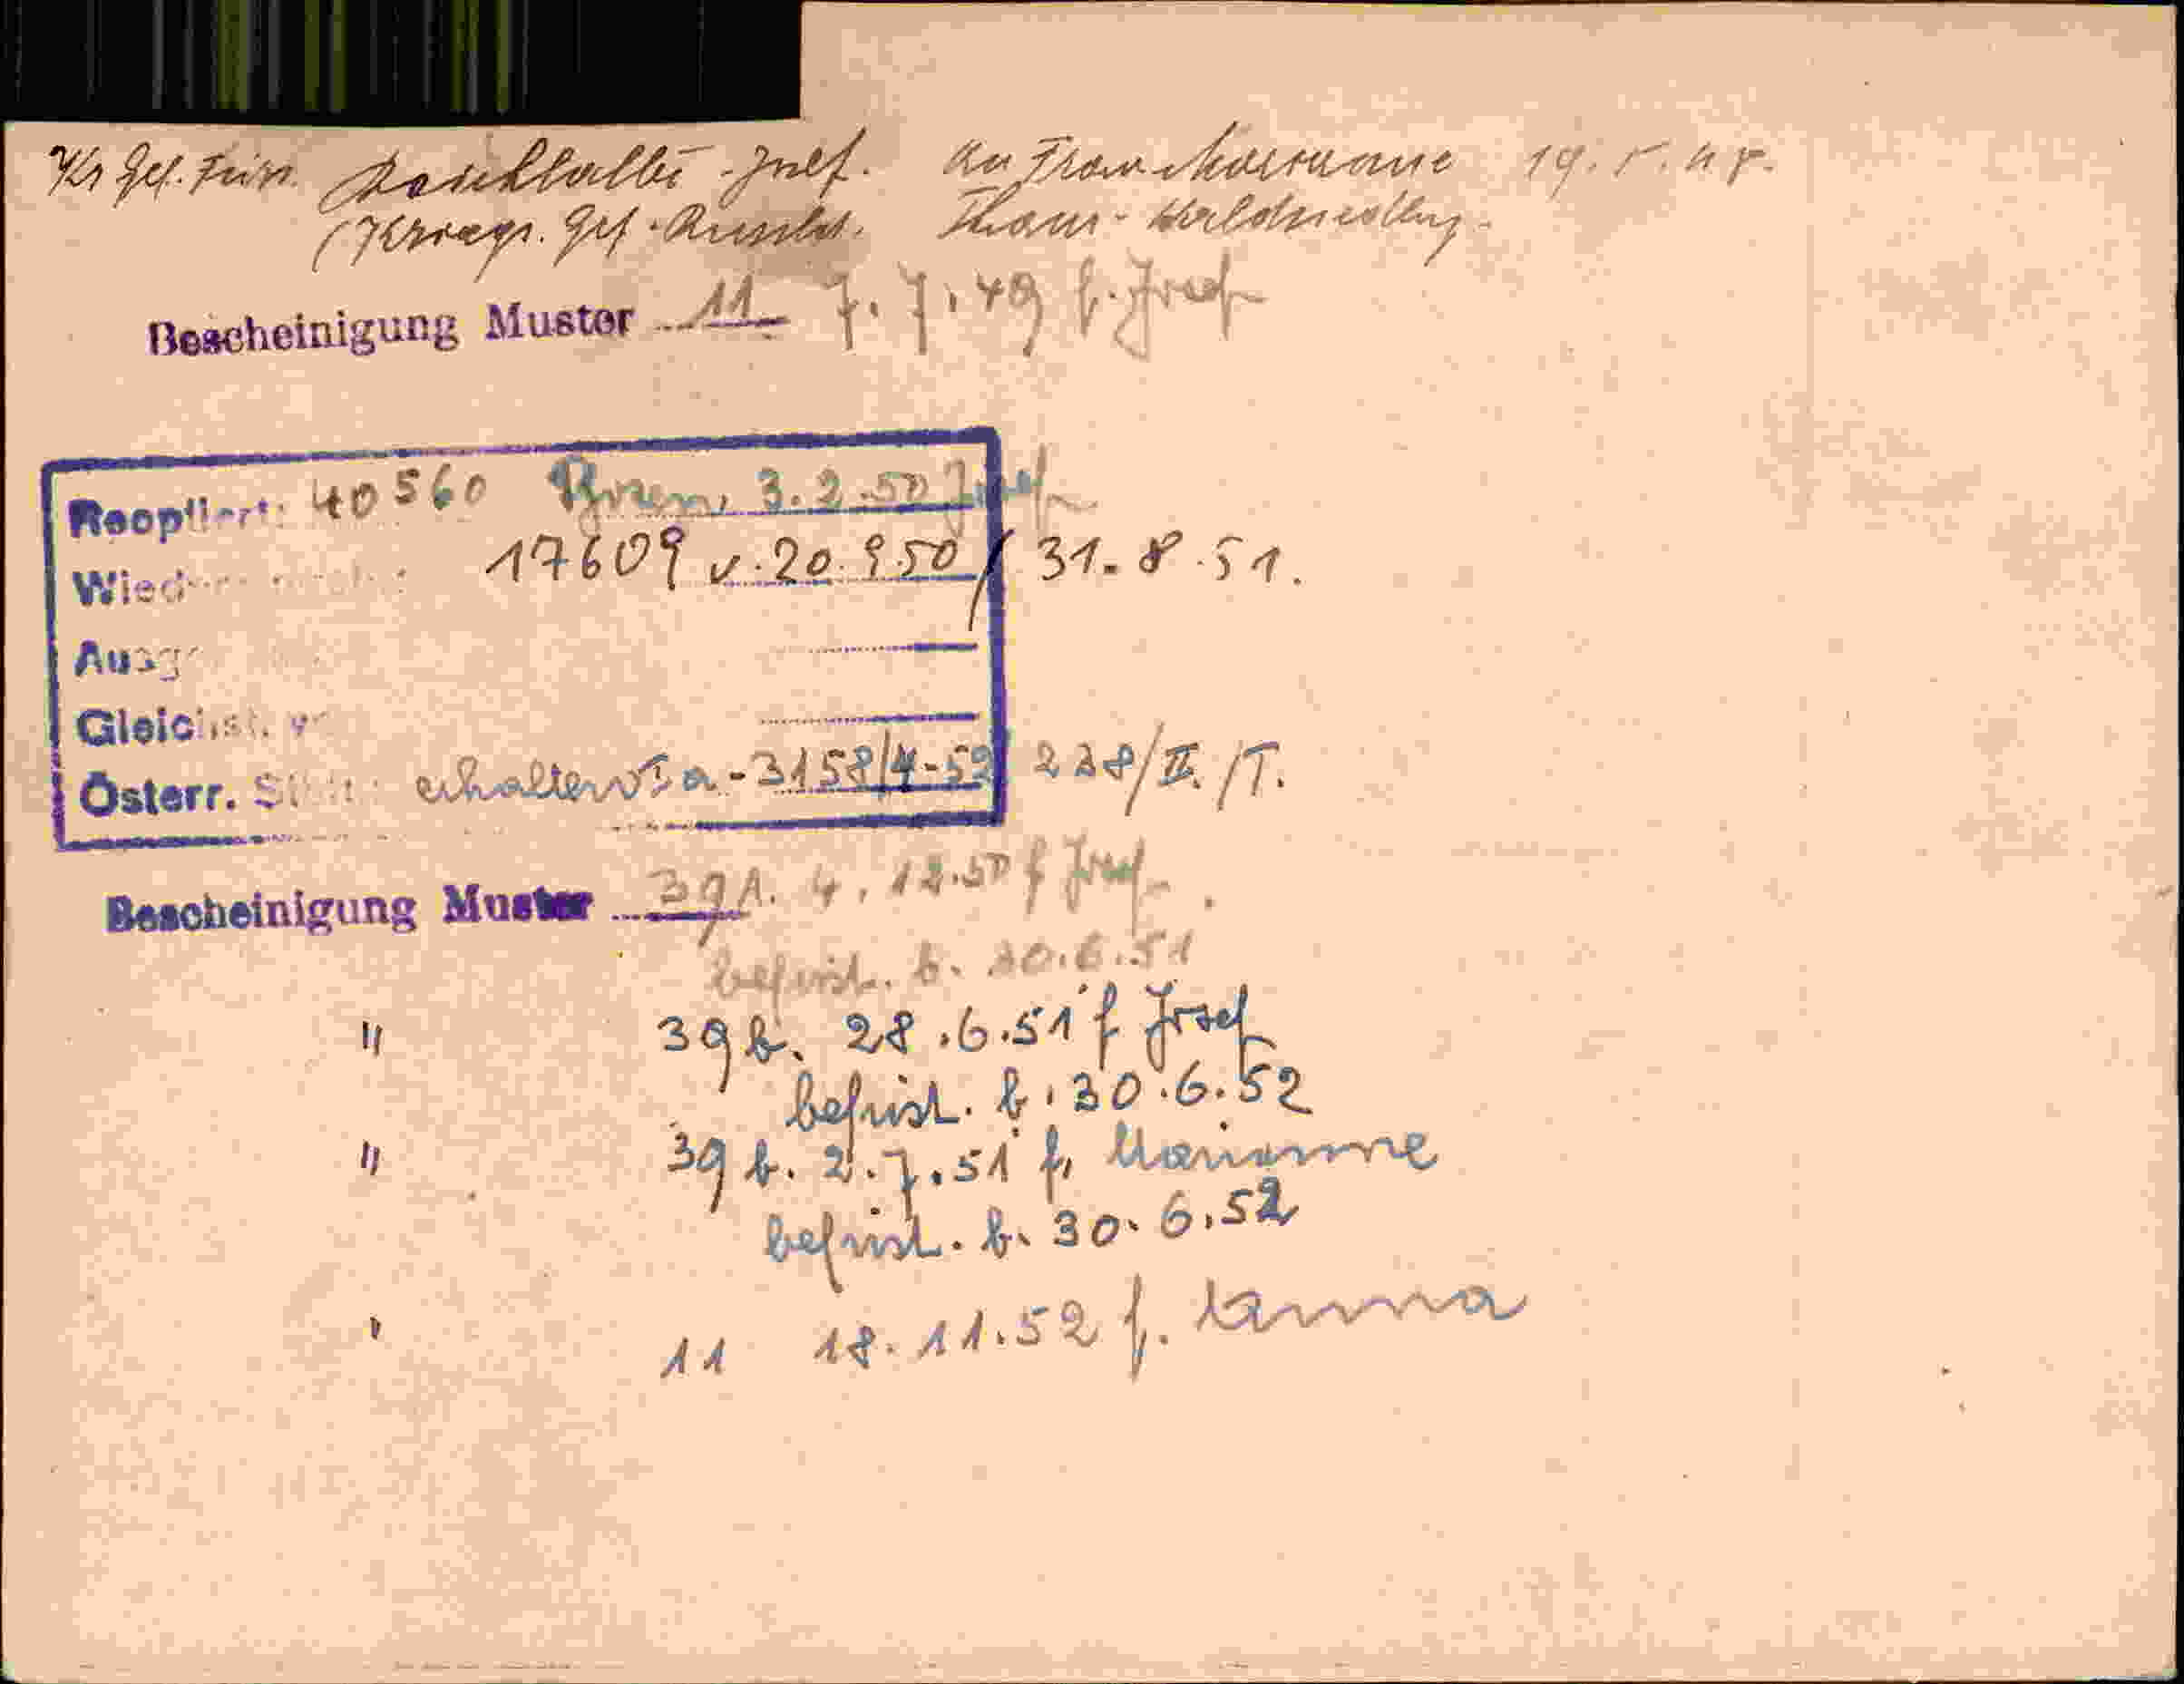 Josef. An Frau Marianne 19. 5. 48.
(Kriegs. Gef. Thaur-Waldsiedlung.
Bescheinigung Muster 11 7.7.49 f. Josef
40560 Bozen, 3.2.50 Josef
17609 v. 20.9.50 / 31.8.51.
Gleichst.
Österr. erhalten Ia-3158/4-52 228/II./T.
Bescheinigung Muster 39A. 4.12.50 f Josef
befrist. b. 30.6.51
" 39 b. 28.6.51 f Josef
befrist. b. 30.6.52
" 39 b. 2.7.51 f. Marianne
befrist. b. 30.6.52
" 11 18.11.52 f. Anna